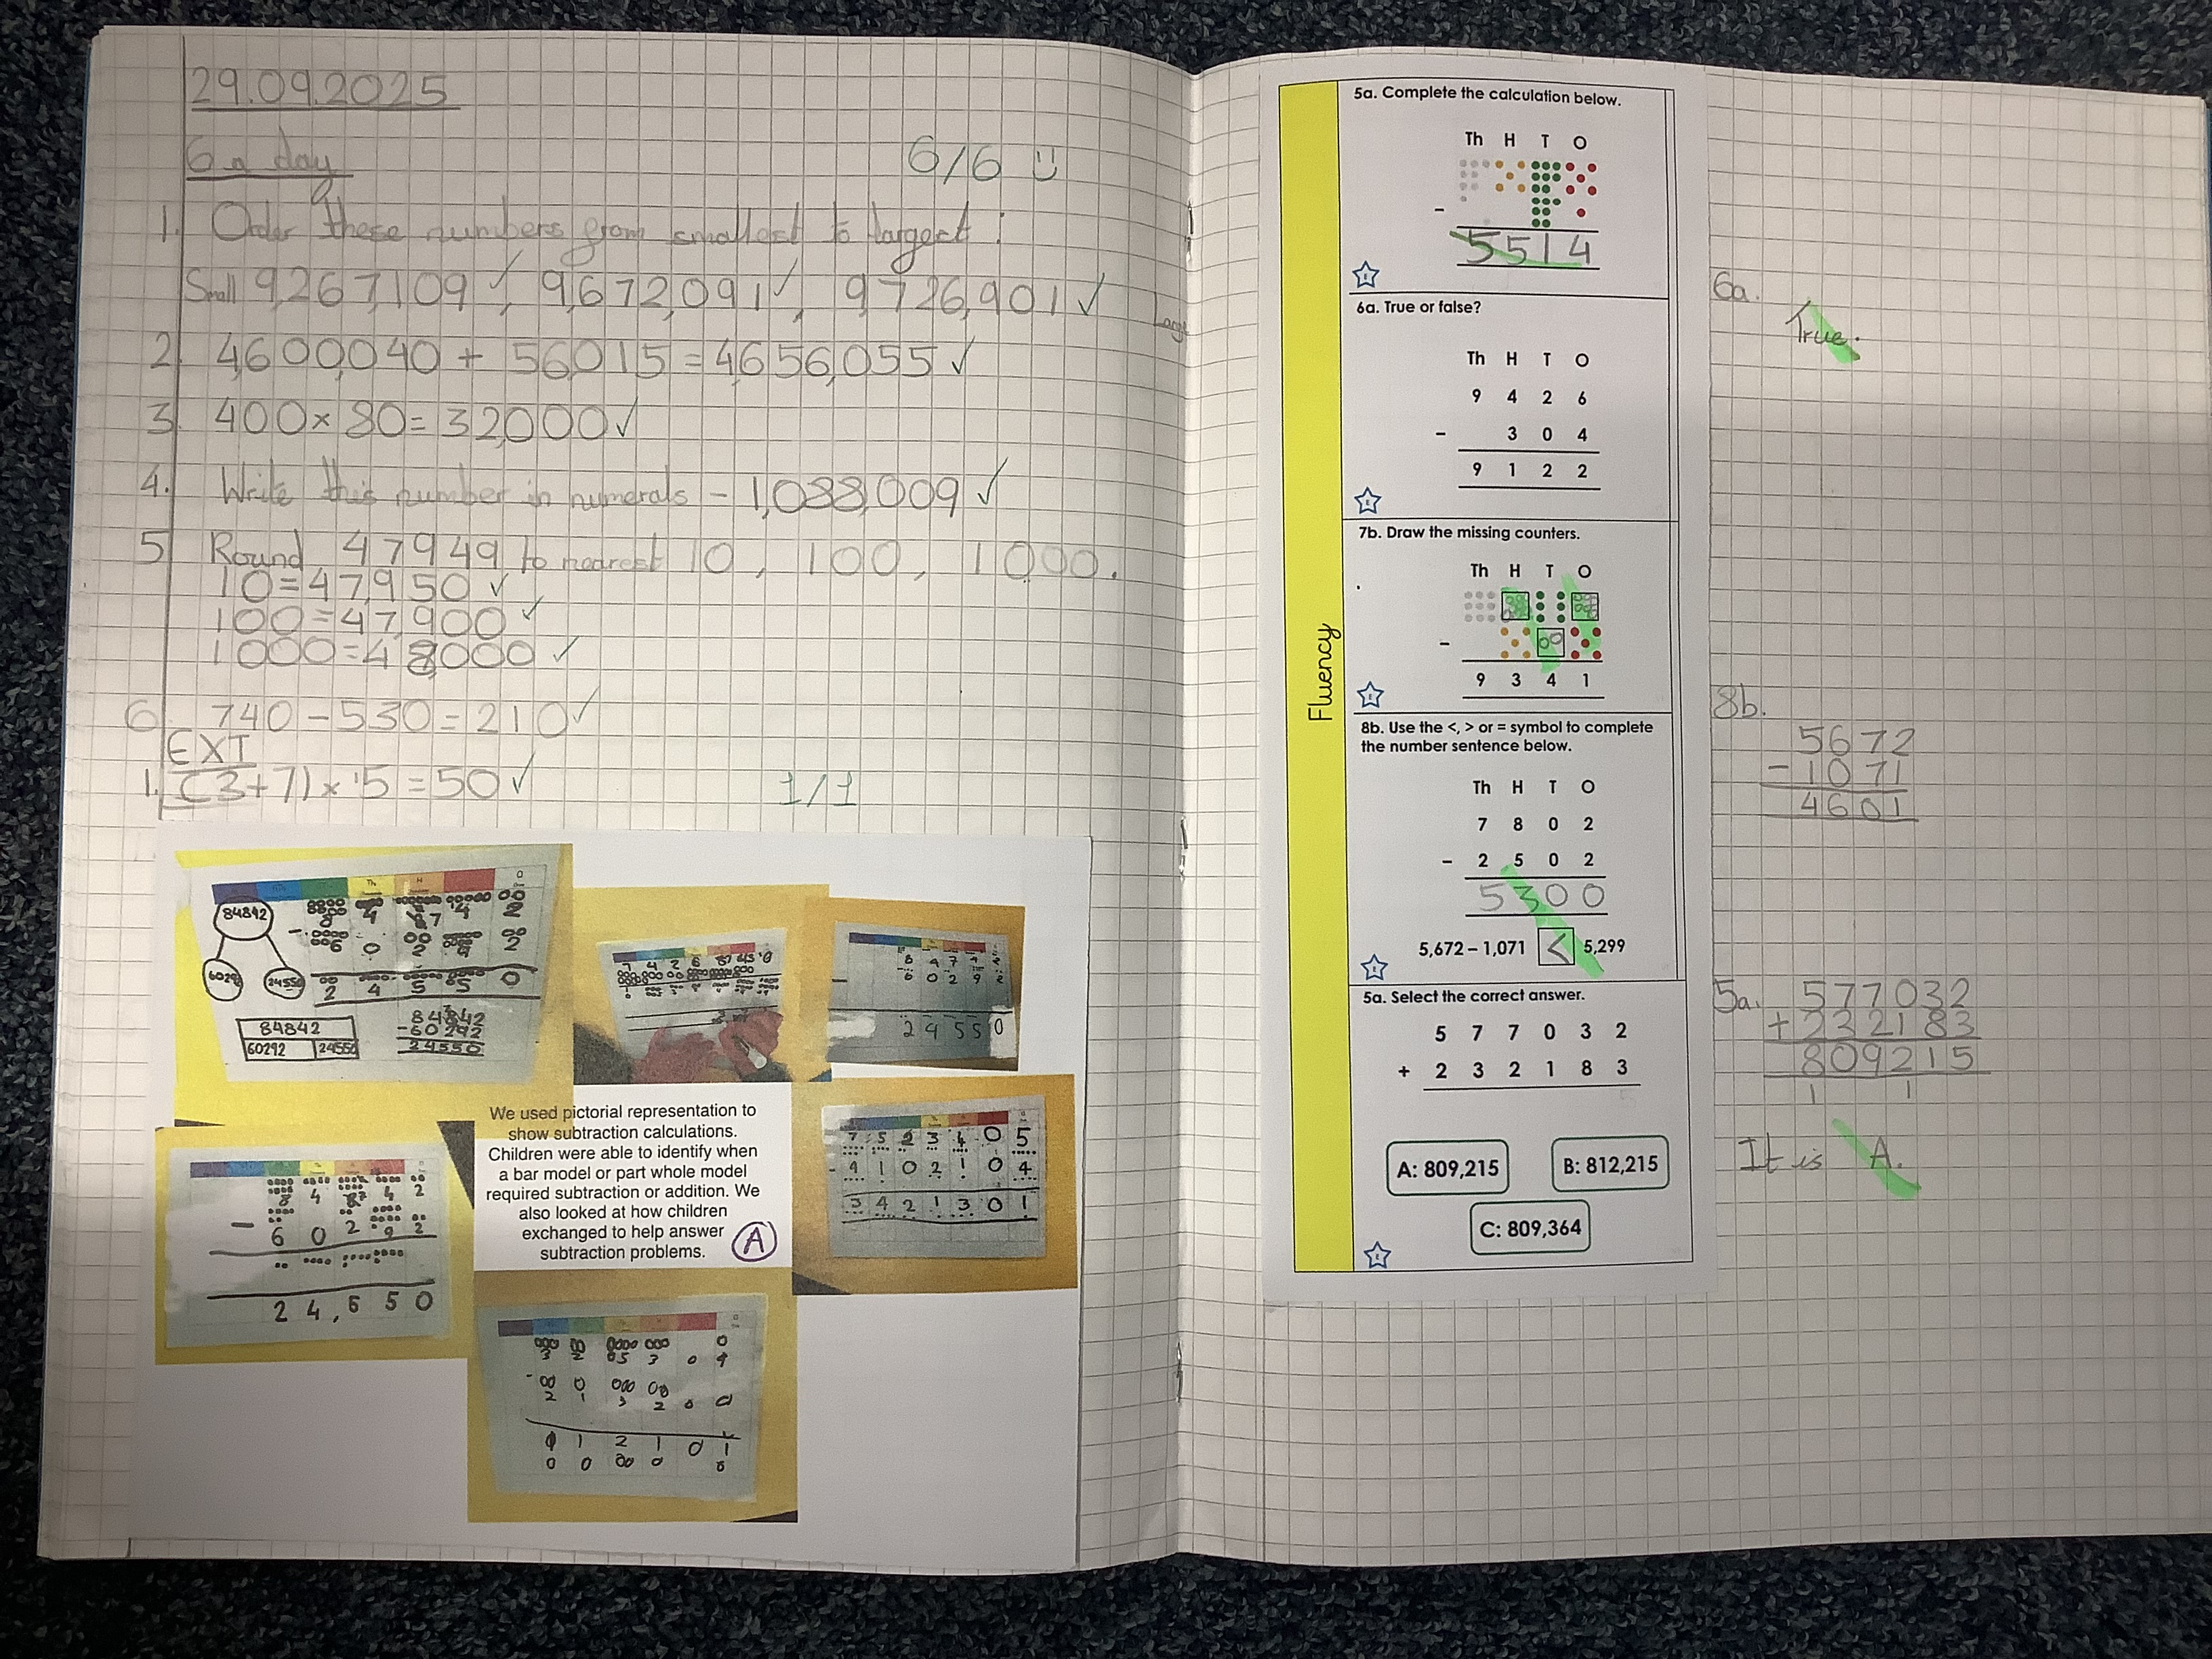 29.09.2025
6 a day
6/6
1. Order these numbers from smallest to largest:
Small 9,267,109 ✓, 9,672,091 ✓, 9,726,901 ✓ Large
2. 4,600,040 + 56,015 = 4,656,055 ✓
3. 400 × 80 = 32,000 ✓
4. Write this number in numerals - 1,088,009 ✓
5 Round 47949 to nearest 10, 100, 1000.
10 = 47,950 ✓
100 = 47,900 ✓
1000 = 48000 ✓
6 740 - 530 = 210 ✓
EXT
1. (3+7) × 5 = 50 ✓
1/1
84842
60292 24550
2 4 5 5 0
84842
60292 24550
84842
- 60292
24550
2 4 5 5 0
We used pictorial representation to
show subtraction calculations.
Children were able to identify when
a bar model or part whole model
required subtraction or addition. We
also looked at how children
exchanged to help answer
subtraction problems.
A
7 5 2 3 4 0 5
- 4 1 0 2 1 0 4
3 4 2 1 3 0 1
8 4 8 7 4 2
- 6 0 2 9 2
3 2 5 3 0
2 1 3 2 0 0
1 1 2 1 0 1
Fluency
5a. Complete the calculation below.
Th H T O
-
5514
6a. True or false?
Th H T O
9 4 2 6
- 3 0 4
9 1 2 2
6a.
True.
7b. Draw the missing counters.
Th H T O
-
9 3 4 1
8b. Use the <, > or = symbol to complete
the number sentence below.
Th H T O
7 8 0 2
- 2 5 0 2
5 3 0 0
5,672 – 1,071 < 5,299
8b.
5672
- 1071
4601
5a. Select the correct answer.
5 7 7 0 3 2
+ 2 3 2 1 8 3
A: 809,215 B: 812,215
C: 809,364
5a. 577032
+ 232183
809215
1 1
It is A.